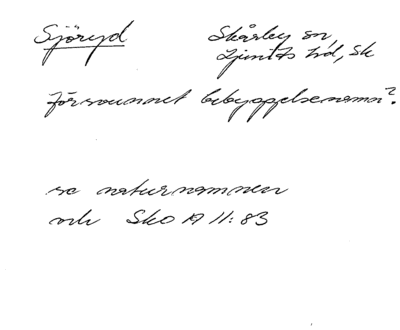 Sjöryd Skårby sn,
Ljunits hd, Sk
försvunnet bebyggelsenamn?
se naturnamnen
och Sko A 11:83